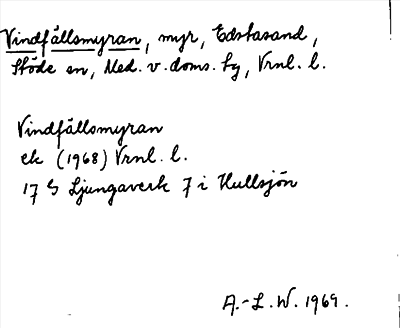 Vindfällsmyran, myr, Edstasand,
Stöde sn, Med. v. doms. tg, Vrnl. l.
Vindfällsmyran
ek (1968) Vrnl. l.
17 S Ljungaverk 7 i Hullsjön
A.-L. W. 1969.